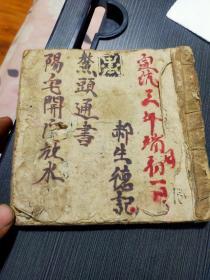 宣統三年端月初一日
郝生德記
鰲頭通書
陽宅開門放水